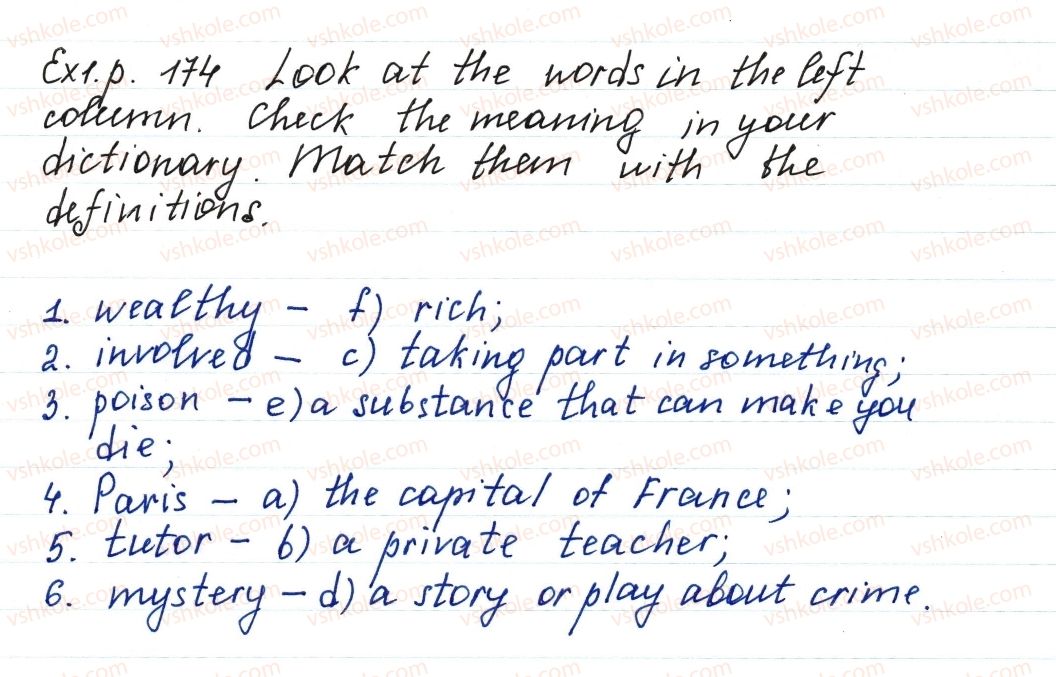 Ex1.p. 174 Look at the words in the left
column. Check the meaning in your
dictionary. Match them with the
definitions.
1. wealthy – f) rich;
2. involved – c) taking part in something;
3. poison – e) a substance that can make you
die;
4. Paris – a) the capital of France;
5. tutor – b) a private teacher;
6. mystery – d) a story or play about crime.